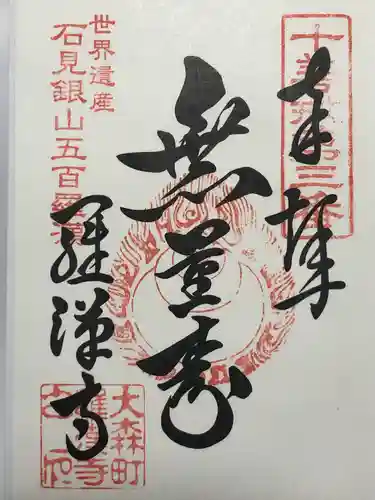 奉拝
無量寿
羅漢寺
世界遺産
石見銀山五百羅漢
大森町
羅漢寺